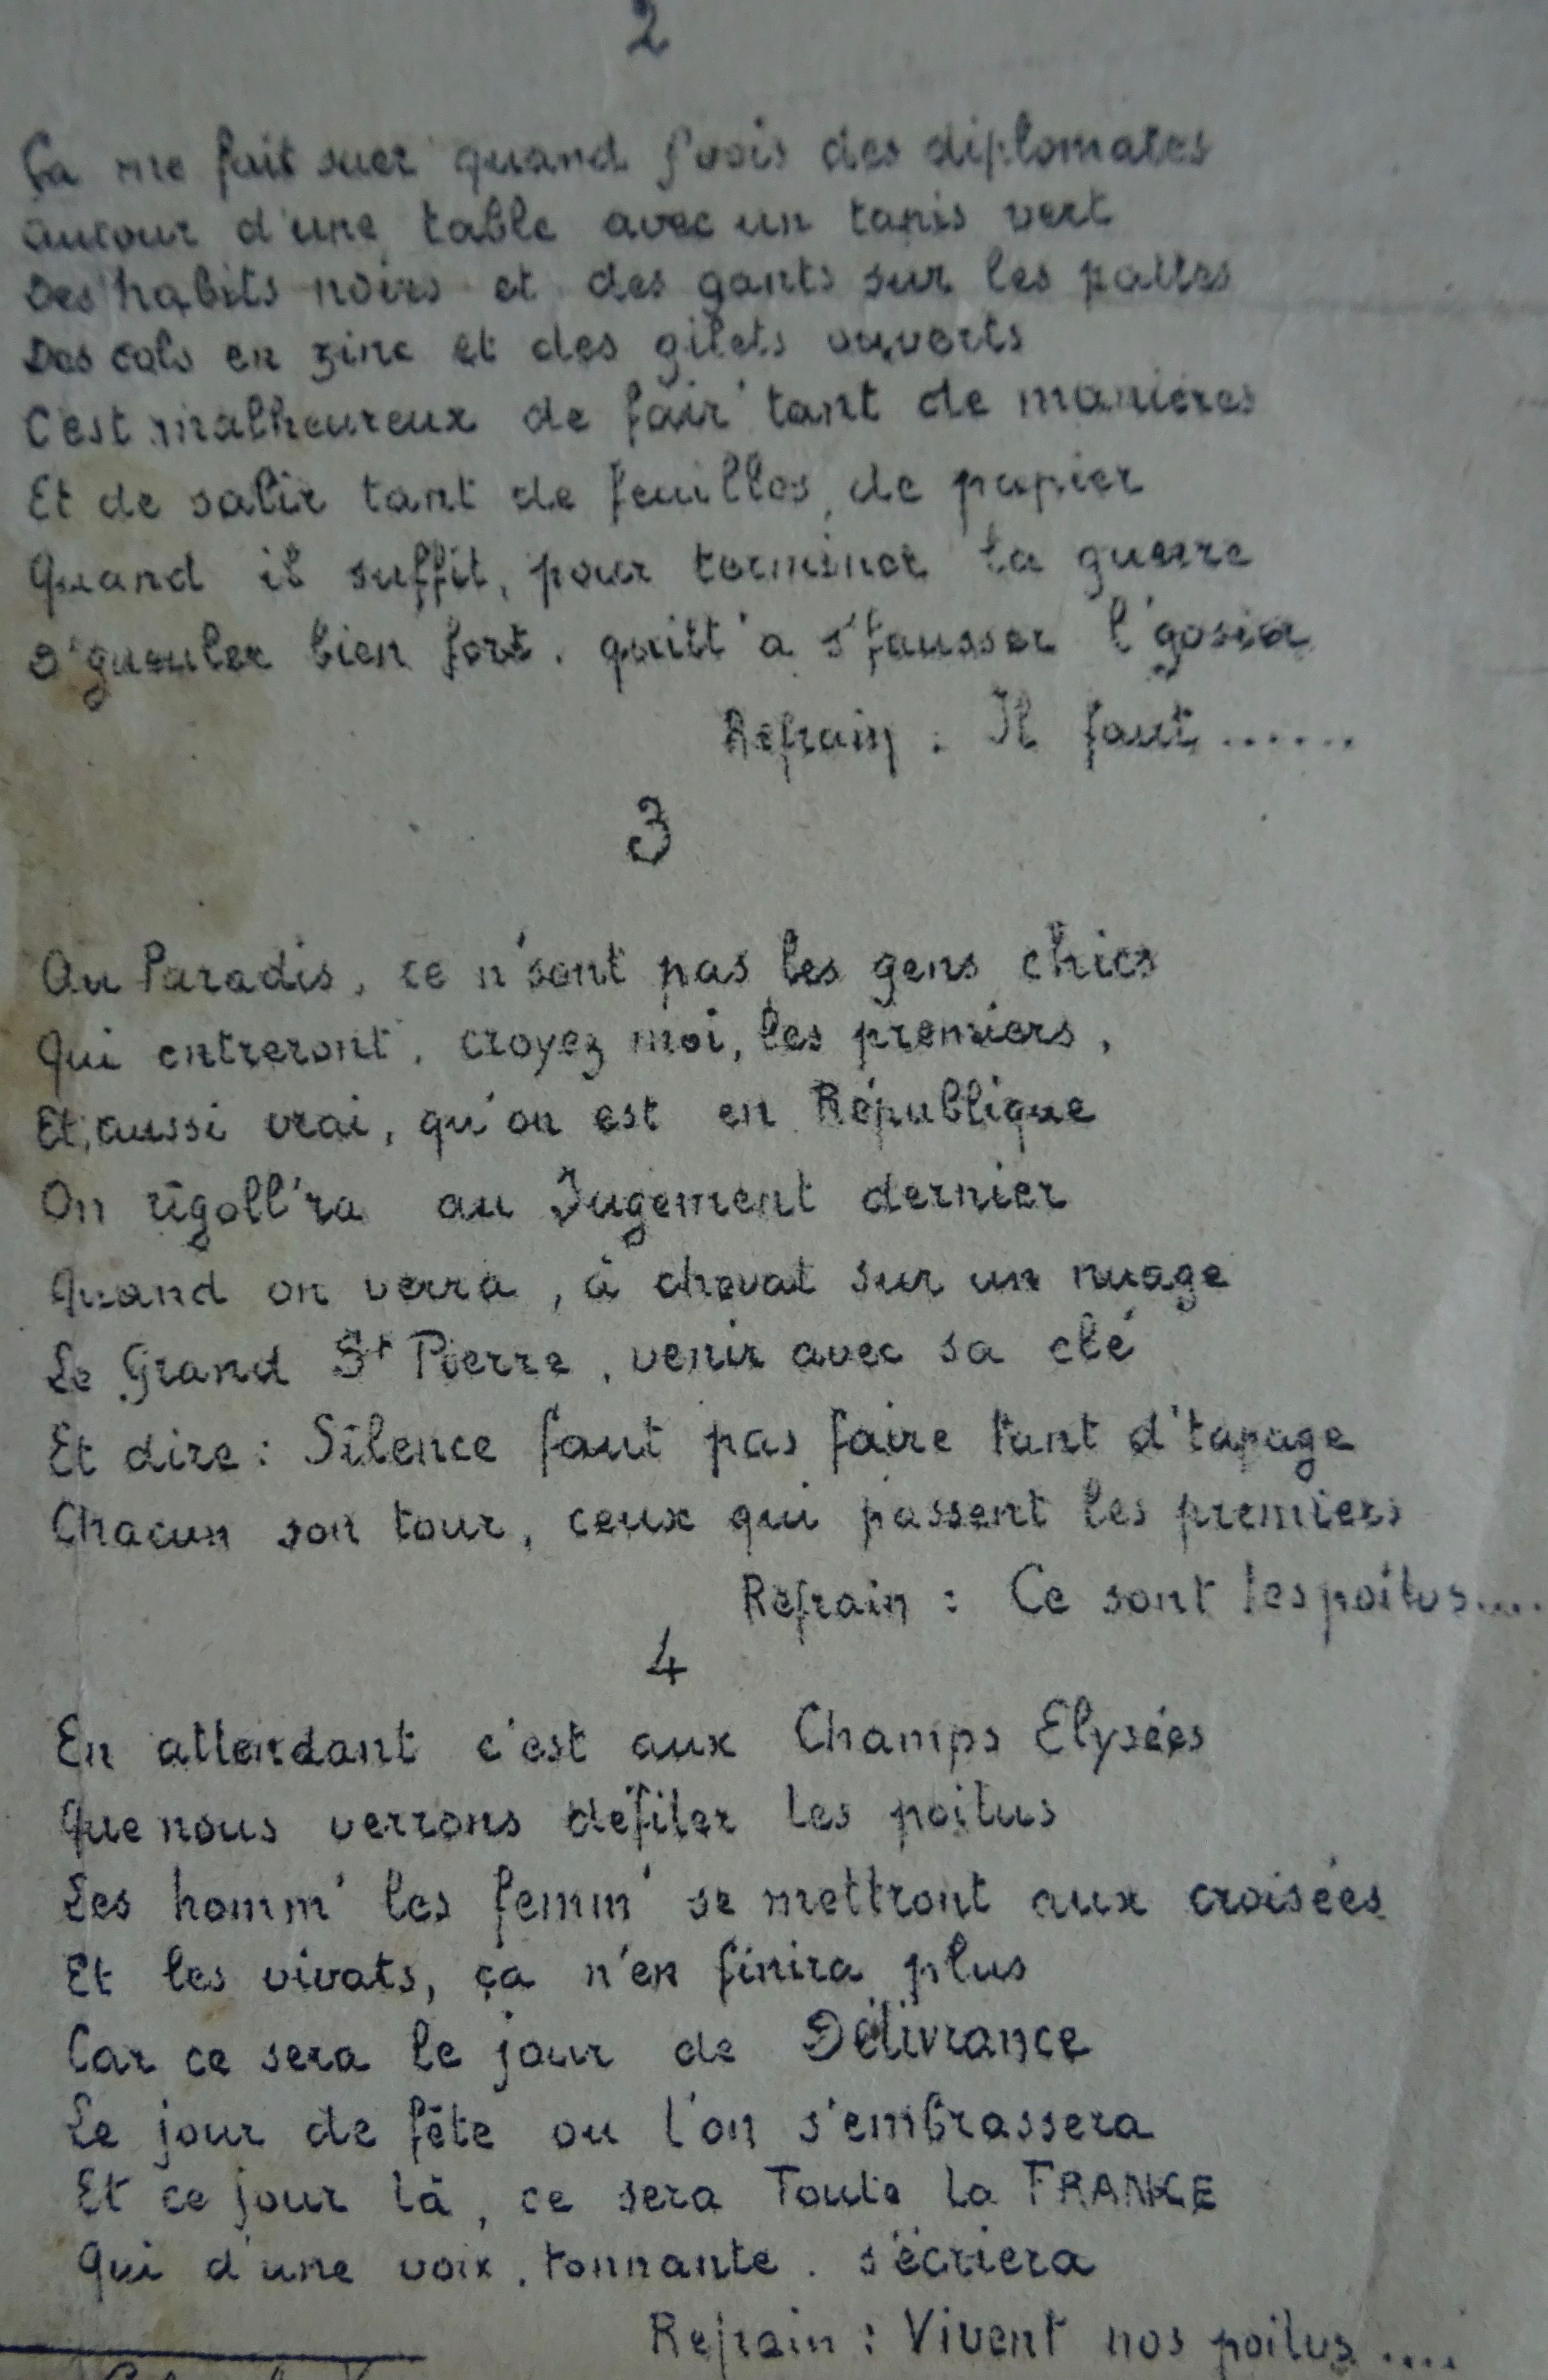 2
Ça me fait suer quand j'vois des diplomates
autour d'une table avec un tapis vert
Des habits noirs et des gants sur les pattes
Des cols en zinc et des gilets ouverts
C'est malheureux de fair' tant de manières
Et de salir tant de feuilles, de papier
Quand il suffit, pour terminer la guerre
D'gueuler bien fort, quitt'a s'fausser l'gosier
Refrain : Il faut ......
3
Au Paradis, ce n'sont pas les gens chics
Qui entreront, croyez moi, les premiers,
Et, aussi vrai, qu'on est en République
On rigoll'ra au Jugement dernier
Quand on verra, à cheval sur un nuage
Le Grand St Pierre, venir avec sa clé
Et dire : Silence faut pas faire tant d'tapage
Chacun son tour, ceux qui passent les premiers
Refrain : Ce sont les poilus....
4
En attendant c'est aux Champs Elysées
Que nous verrons défiler les poilus
Les homm' les femm' se mettront aux croisées
Et les vivats, ça n'en finira plus
Car ce sera le jour de Délivrance
Le jour de fête ou l'on s'embrassera
Et ce jour là, ce sera Toute la FRANCE
Qui d'une voix, tonnante. s'écriera
Refrain : Vivent nos poilus ....